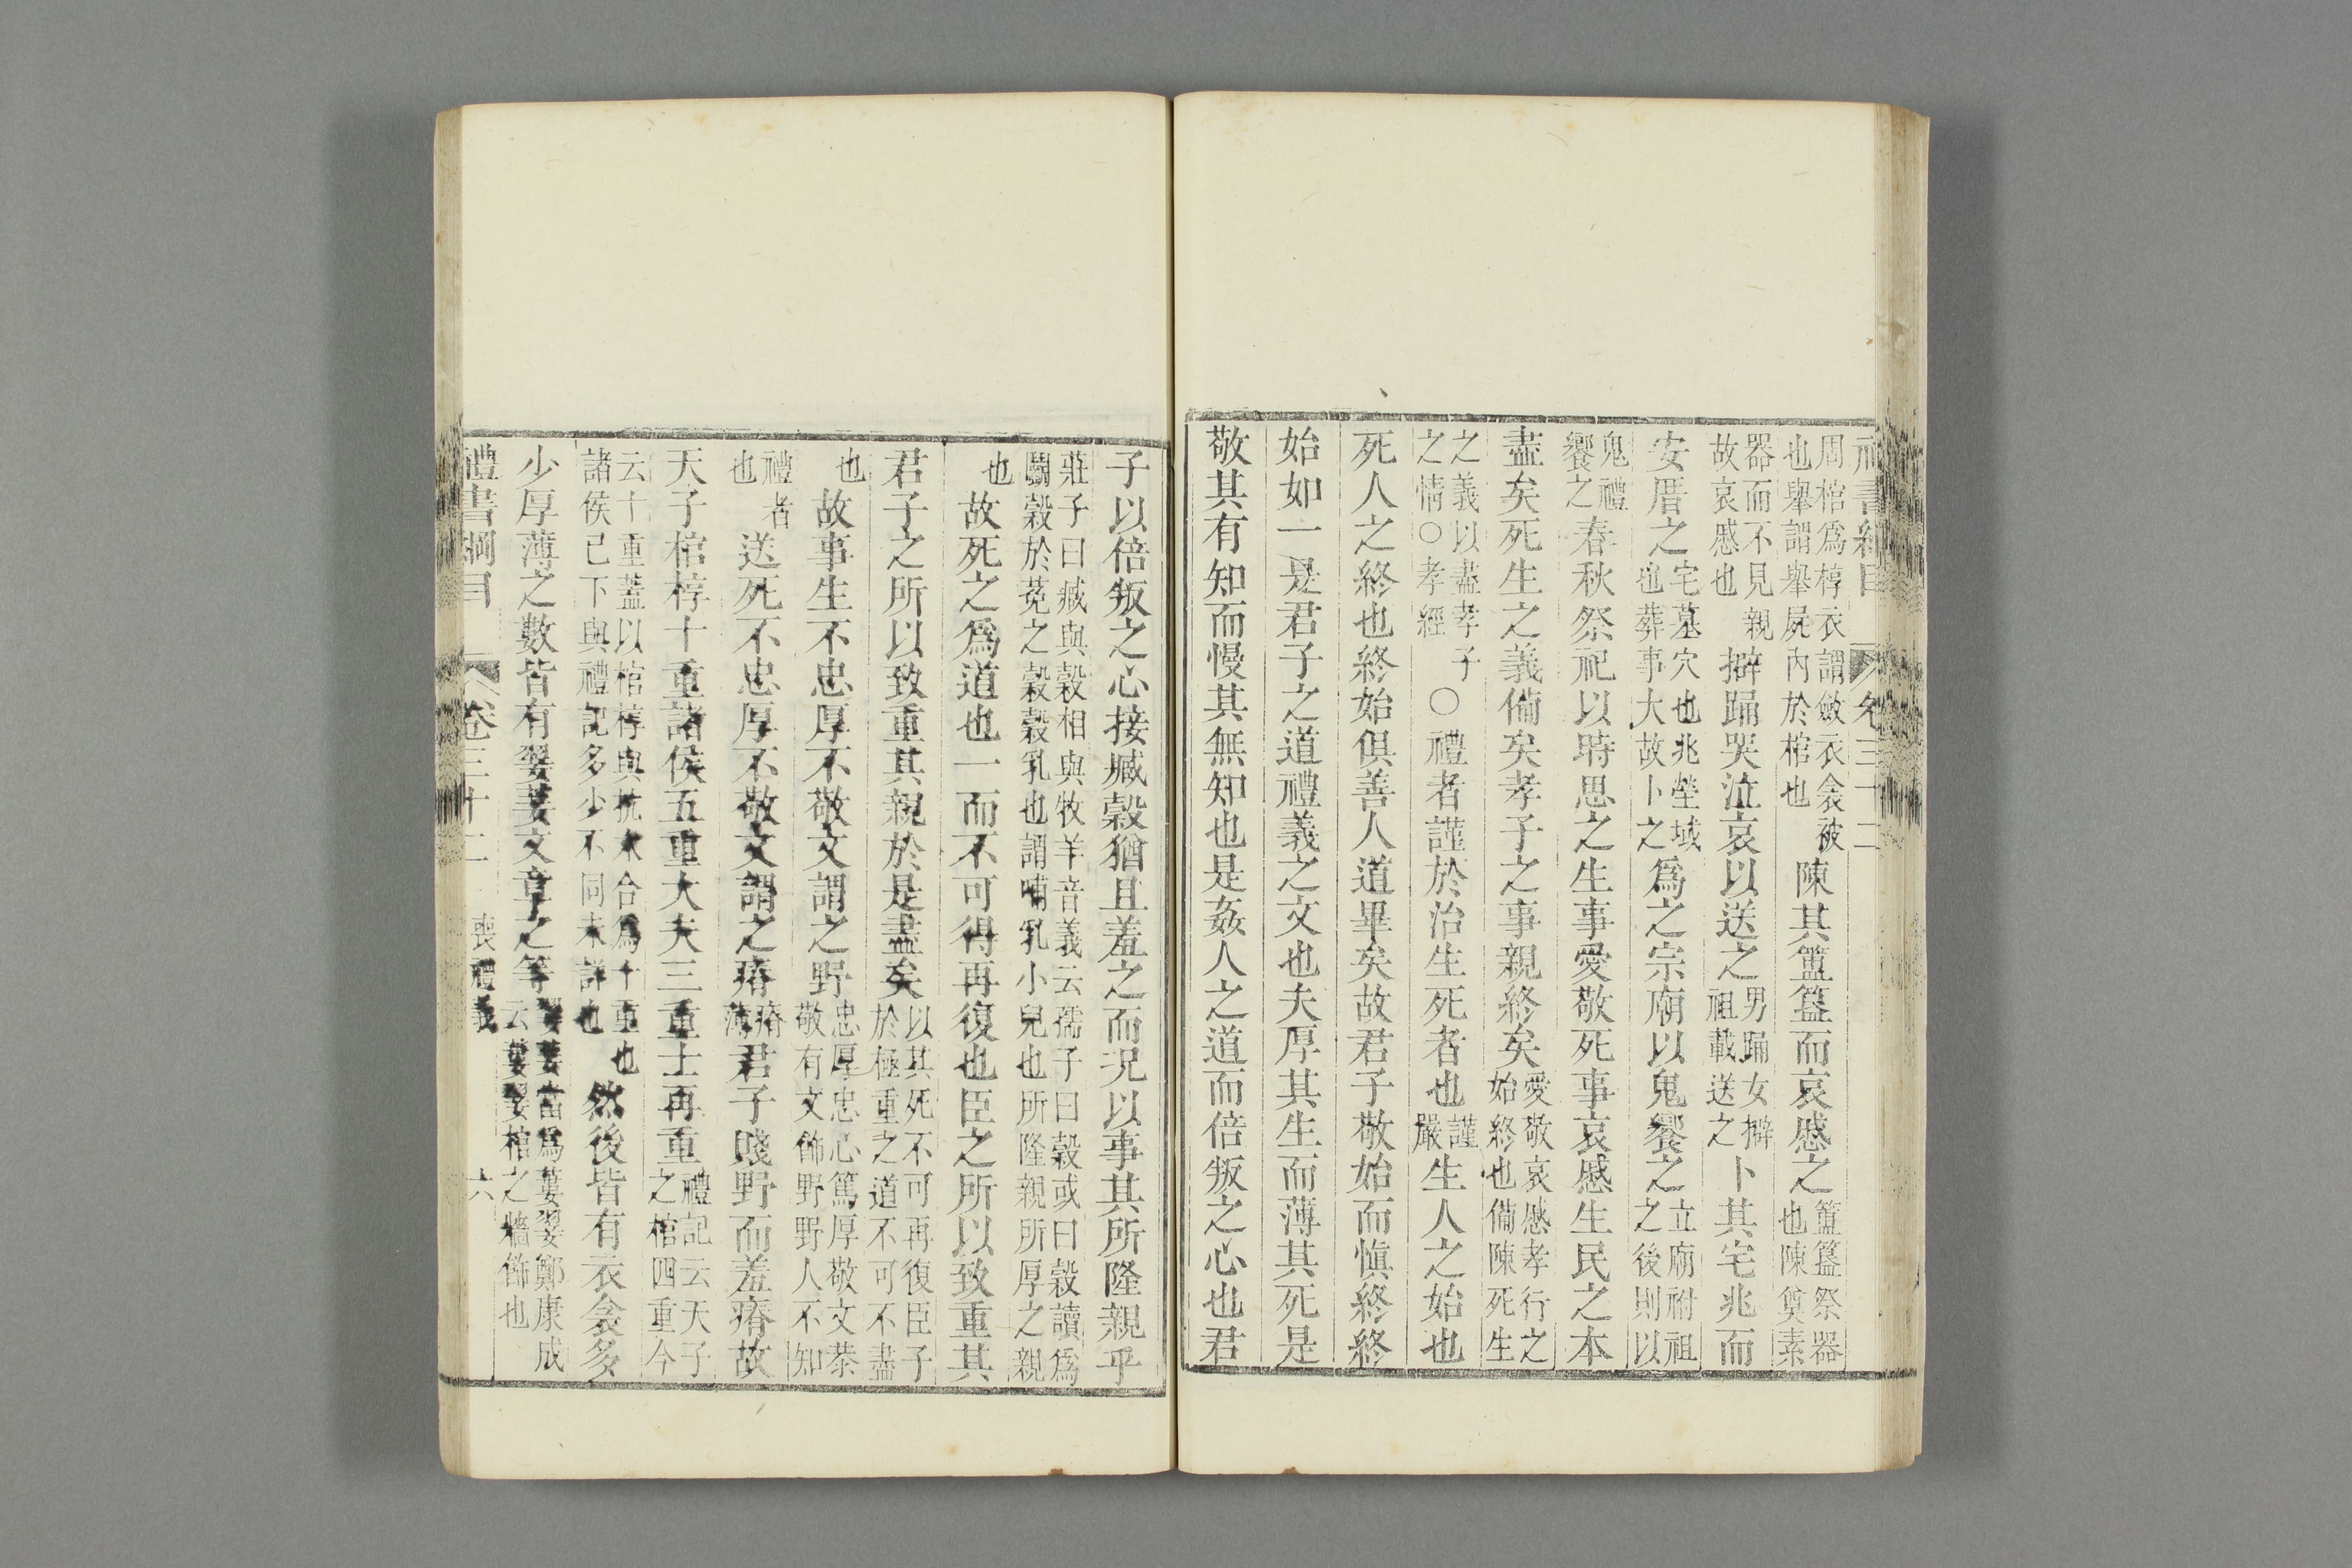 禮書綱目 卷三十二
周棺爲椁衣謂斂衣衾被也舉謂舉屍內於棺也陳其簠簋而哀慼之簠簋祭器也陳奠素
器而不見親故哀慼也擗踊哭泣哀以送之男踊女擗祖載送之卜其宅兆而
安厝之宅墓穴也兆塋域也葬事大故卜之爲之宗廟以鬼饗之立廟祔祖之後則以
鬼禮饗之春秋祭祀以時思之生事愛敬死事哀慼生民之本
盡矣死生之義僃矣孝子之事親終矣愛敬哀慼孝行之始終也備陳死生
之義以盡孝子之情○孝經○禮者謹於治生死者也謹嚴生人之始也
死人之終也終始俱善人道畢矣故君子敬始而愼終終
始如一是君子之道禮義之文也夫厚其生而薄其死是
敬其有知而慢其無知也是姦人之道而倍叛之心也君
子以倍叛之心接臧榖猶且羞之而况以事其所隆親乎
莊子曰臧與榖相與牧羊音義云孺子曰榖或曰榖讀爲鬭榖於菟之榖榖乳也謂哺乳小兒也所隆親所厚之親
也故死之爲道也一而不可得再復也臣之所以致重其
君子之所以致重其親於是盡矣以其死不可再復臣子於極重之道不可不盡
也故事生不忠厚不敬文謂之野忠厚忠心篤厚敬文恭敬有文飾野野人不知
禮者也送死不忠厚不敬文謂之瘠瘠薄君子賤野而羞瘠故
天子棺椁十重諸侯五重大夫三重士再重禮記云天子之棺四重今
云十重蓋以棺椁與抗木合爲十重也諸侯已下與禮記多少不同未詳也然後皆有衣衾多
少厚薄之數皆有翣蔞文章之等翣蔞當爲蔞翣鄭康成云蔞翣棺之牆飾也
禮書綱目 卷三十二 喪禮義 六